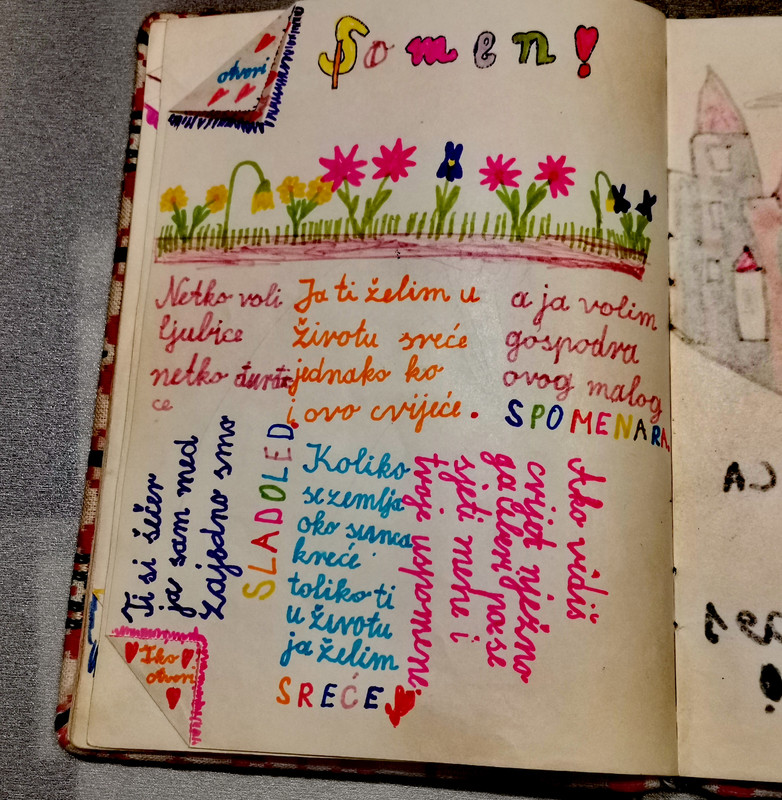 otvori
Spomen!
Netko voli
ljubice
netko đurđi
ce
Ja ti želim u
životu sreće
jednako ko
i ovo cvijeće.
a ja volim
gospodra
ovog malog
SPOMENARA.
Ti si šečer
ja sam med
Zajedno smo
SLADOLED
Koliko
se zemlja
oko sunca
kreće
toliko ti
u životu
ja želim
SREĆE
Ako vidiš
cvijet nježno
ga uberi pa se
sjeti mene i
tvoje uspomene.
Tko
otvori